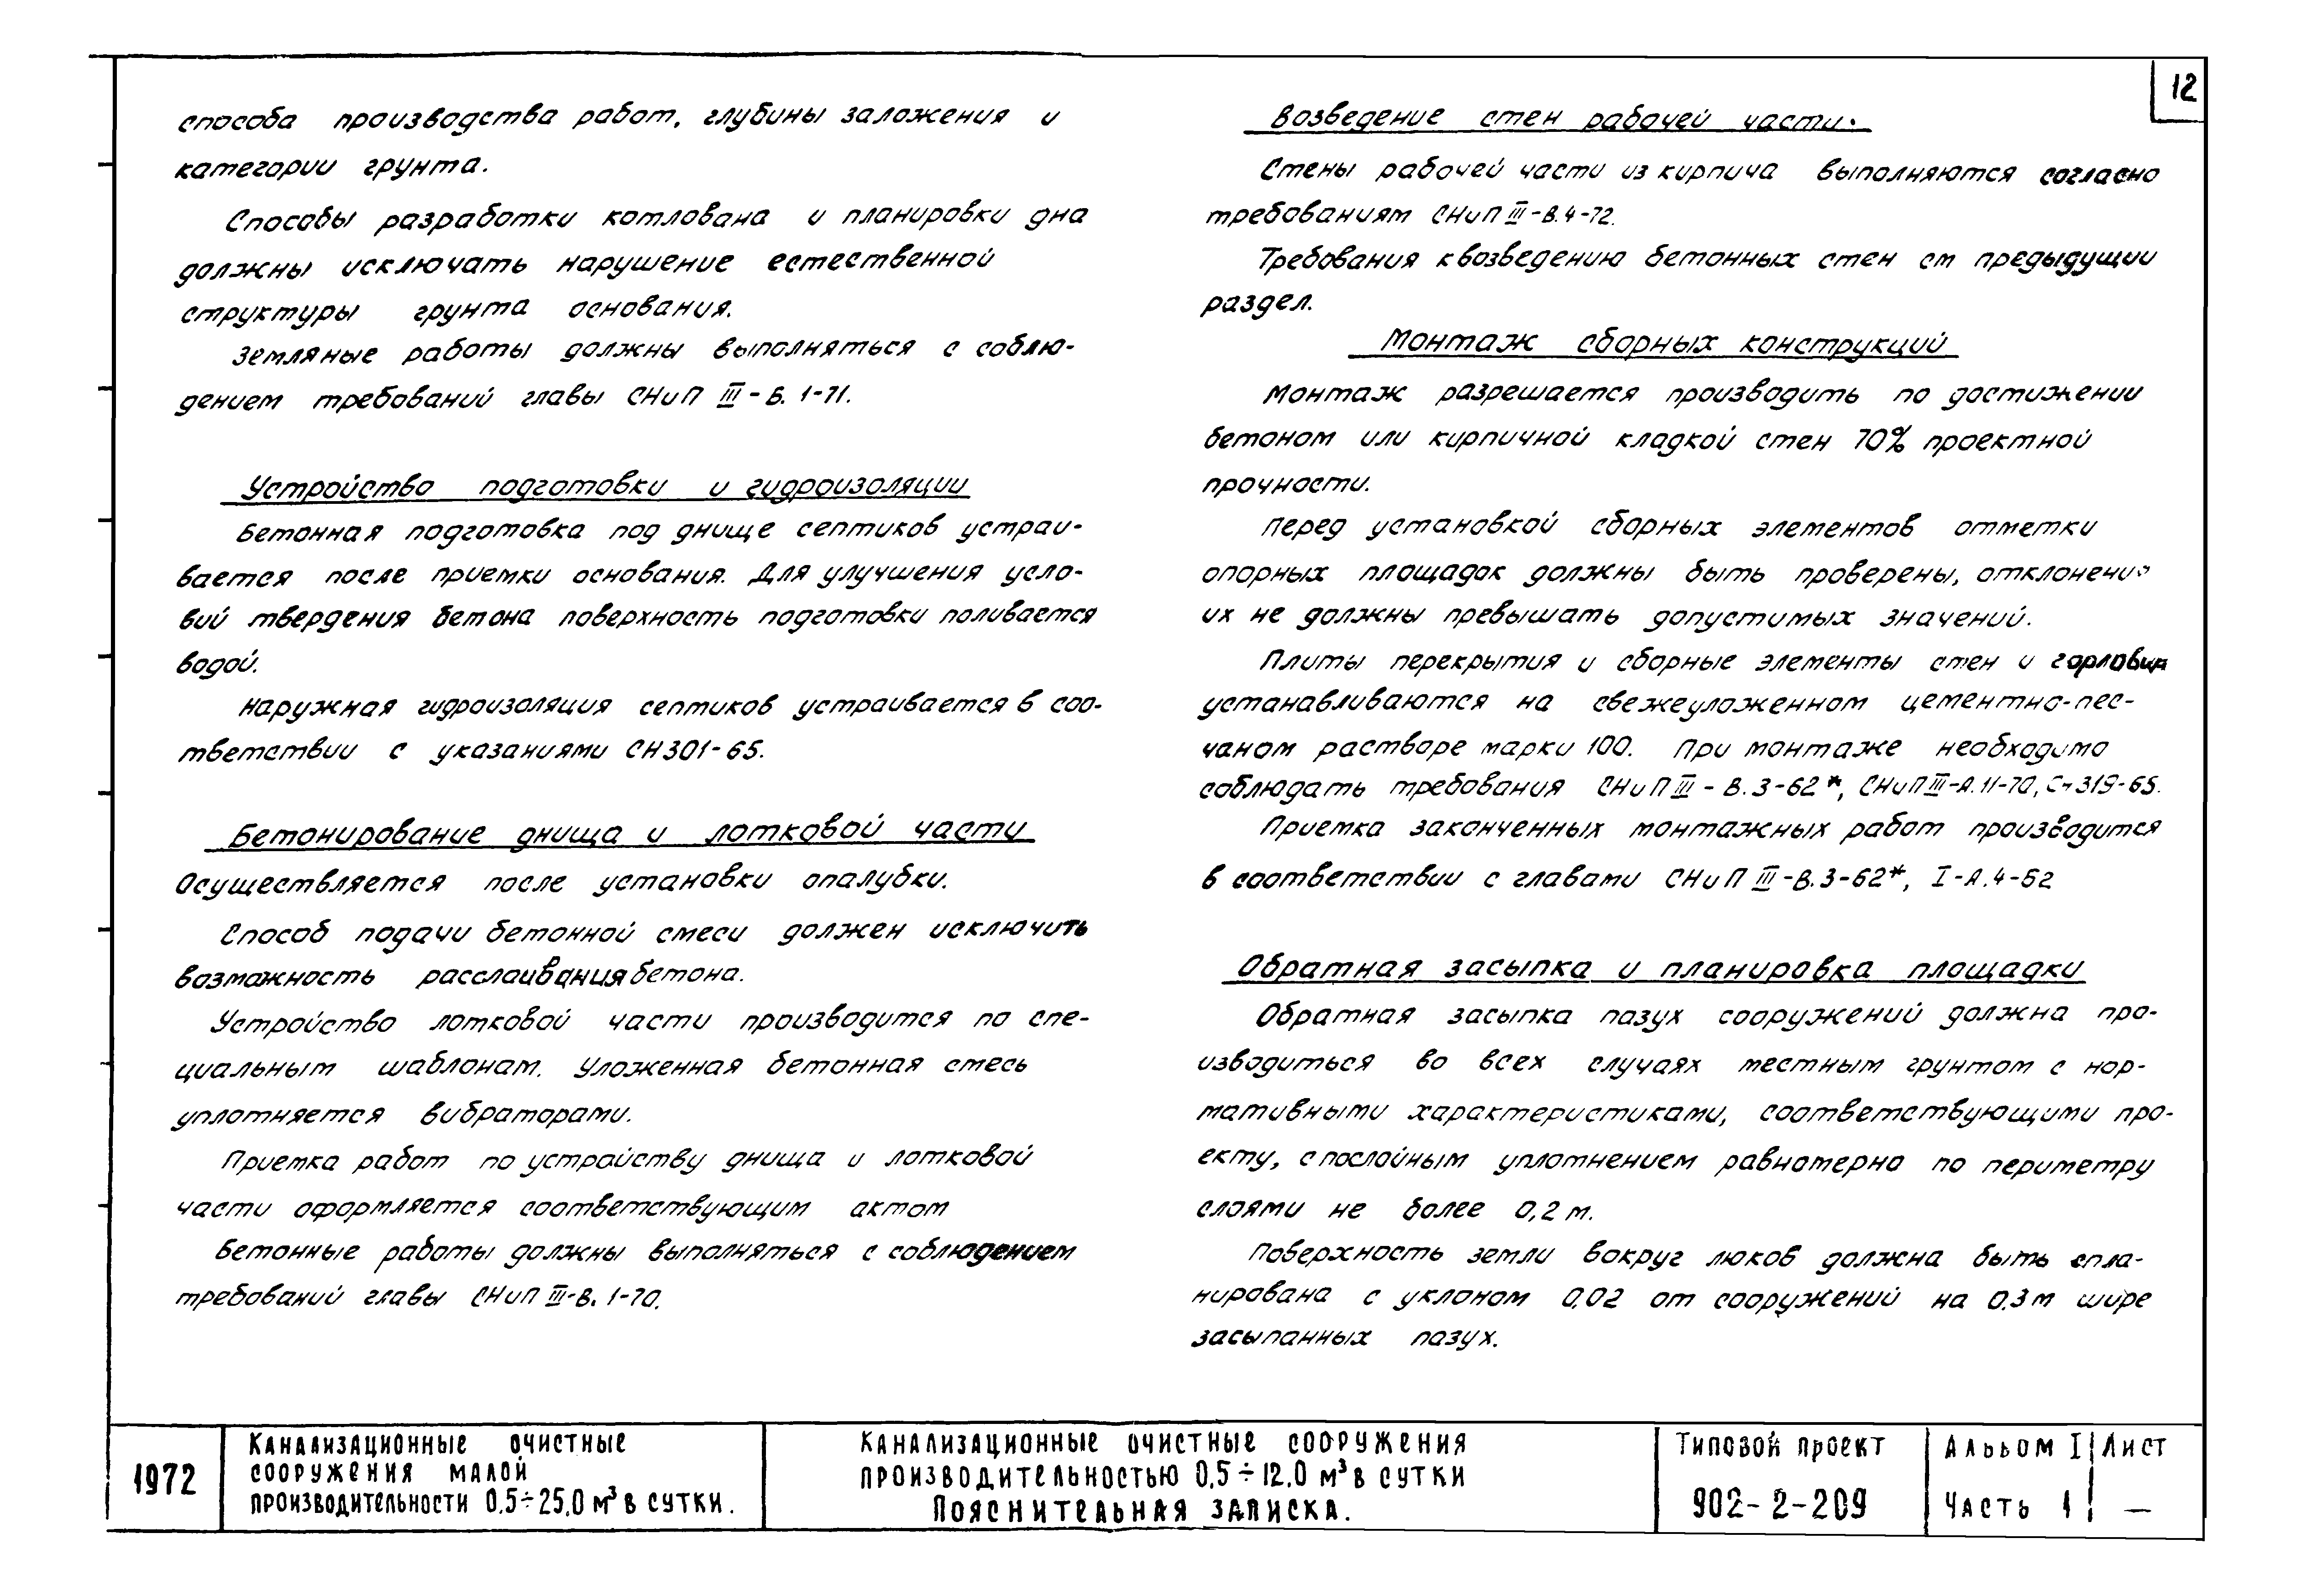 12
способа производства работ, глубины заложения и
категории грунта.
Способы разработки котлована и планировки дна
должны исключать нарушение естественной
структуры грунта основания.
Земляные работы должны выполняться с соблю-
дением требований главы СНиП III-Б. 1-71.
Устройство подготовки и гидроизоляции
Бетонная подготовка под днище септиков устраи-
вается после приемки основания. Для улучшения усло-
вий твердения бетона поверхность подготовки поливается
водой.
Наружная гидроизоляция септиков устраивается в соо-
тветствии с указаниями СН301-65.
Бетонирование днища и лотковой части
Осуществляется после установки опалубки.
Способ подачи бетонной смеси должен исключить
возможность расслаивания бетона.
Устройство лотковой части производится по спе-
циальным шаблонам. Уложенная бетонная смесь
уплотняется вибраторами.
Приемка работ по устройству днища и лотковой
части оформляется соответствующим актом
Бетонные работы должны выполняться с соблюдением
требований главы СНиП III-В. 1-70.
Возведение стен рабочей части.
Стены рабочей части из кирпича выполняются согласно
требованиям СНиП III-В.4-72.
Требования к возведению бетонных стен см предыдущии
раздел.
Монтаж сборных конструкций
Монтаж разрешается производить по достижении
бетоном или кирпичной кладкой стен 70% проектной
прочности.
Перед установкой сборных элементов отметки
опорных площадок должны быть проверены, отклонения
их не должны превышать допустимых значений.
Плиты перекрытия и сборные элементы стен и горловин
устанавливаются на свежеуложенном цементно-пес-
чаном растворе марки 100. При монтаже необходимо
соблюдать требования СНиП III - В.3-62*, СНиП III-А.11-70, СН 319-65.
Приемка законченных монтажных работ производится
в соответствии с главами СНиП III-В.3-62*, I-А.4-62
Обратная засыпка и планировка площадки
Обратная засыпка пазух сооружений должна про-
изводиться во всех случаях местным грунтом с нор-
мативными характеристиками, соответствующими про-
екту, с послойным уплотнением равномерно по периметру
слоями не более 0,2 м.
Поверхность земли вокруг люков должна быть спла-
нирована с уклоном 0,02 от сооружений на 0.3м шире
засыпанных пазух.
1972
Канализационные очистные
сооружения малой
производительности 0.5÷25.0 м³ в сутки.
Канализационные очистные сооружения
производительностью 0.5÷12.0 м³ в сутки
Пояснительная записка.
Типовой проект
902-2-209
Альбом I
Часть 1
Лист
—